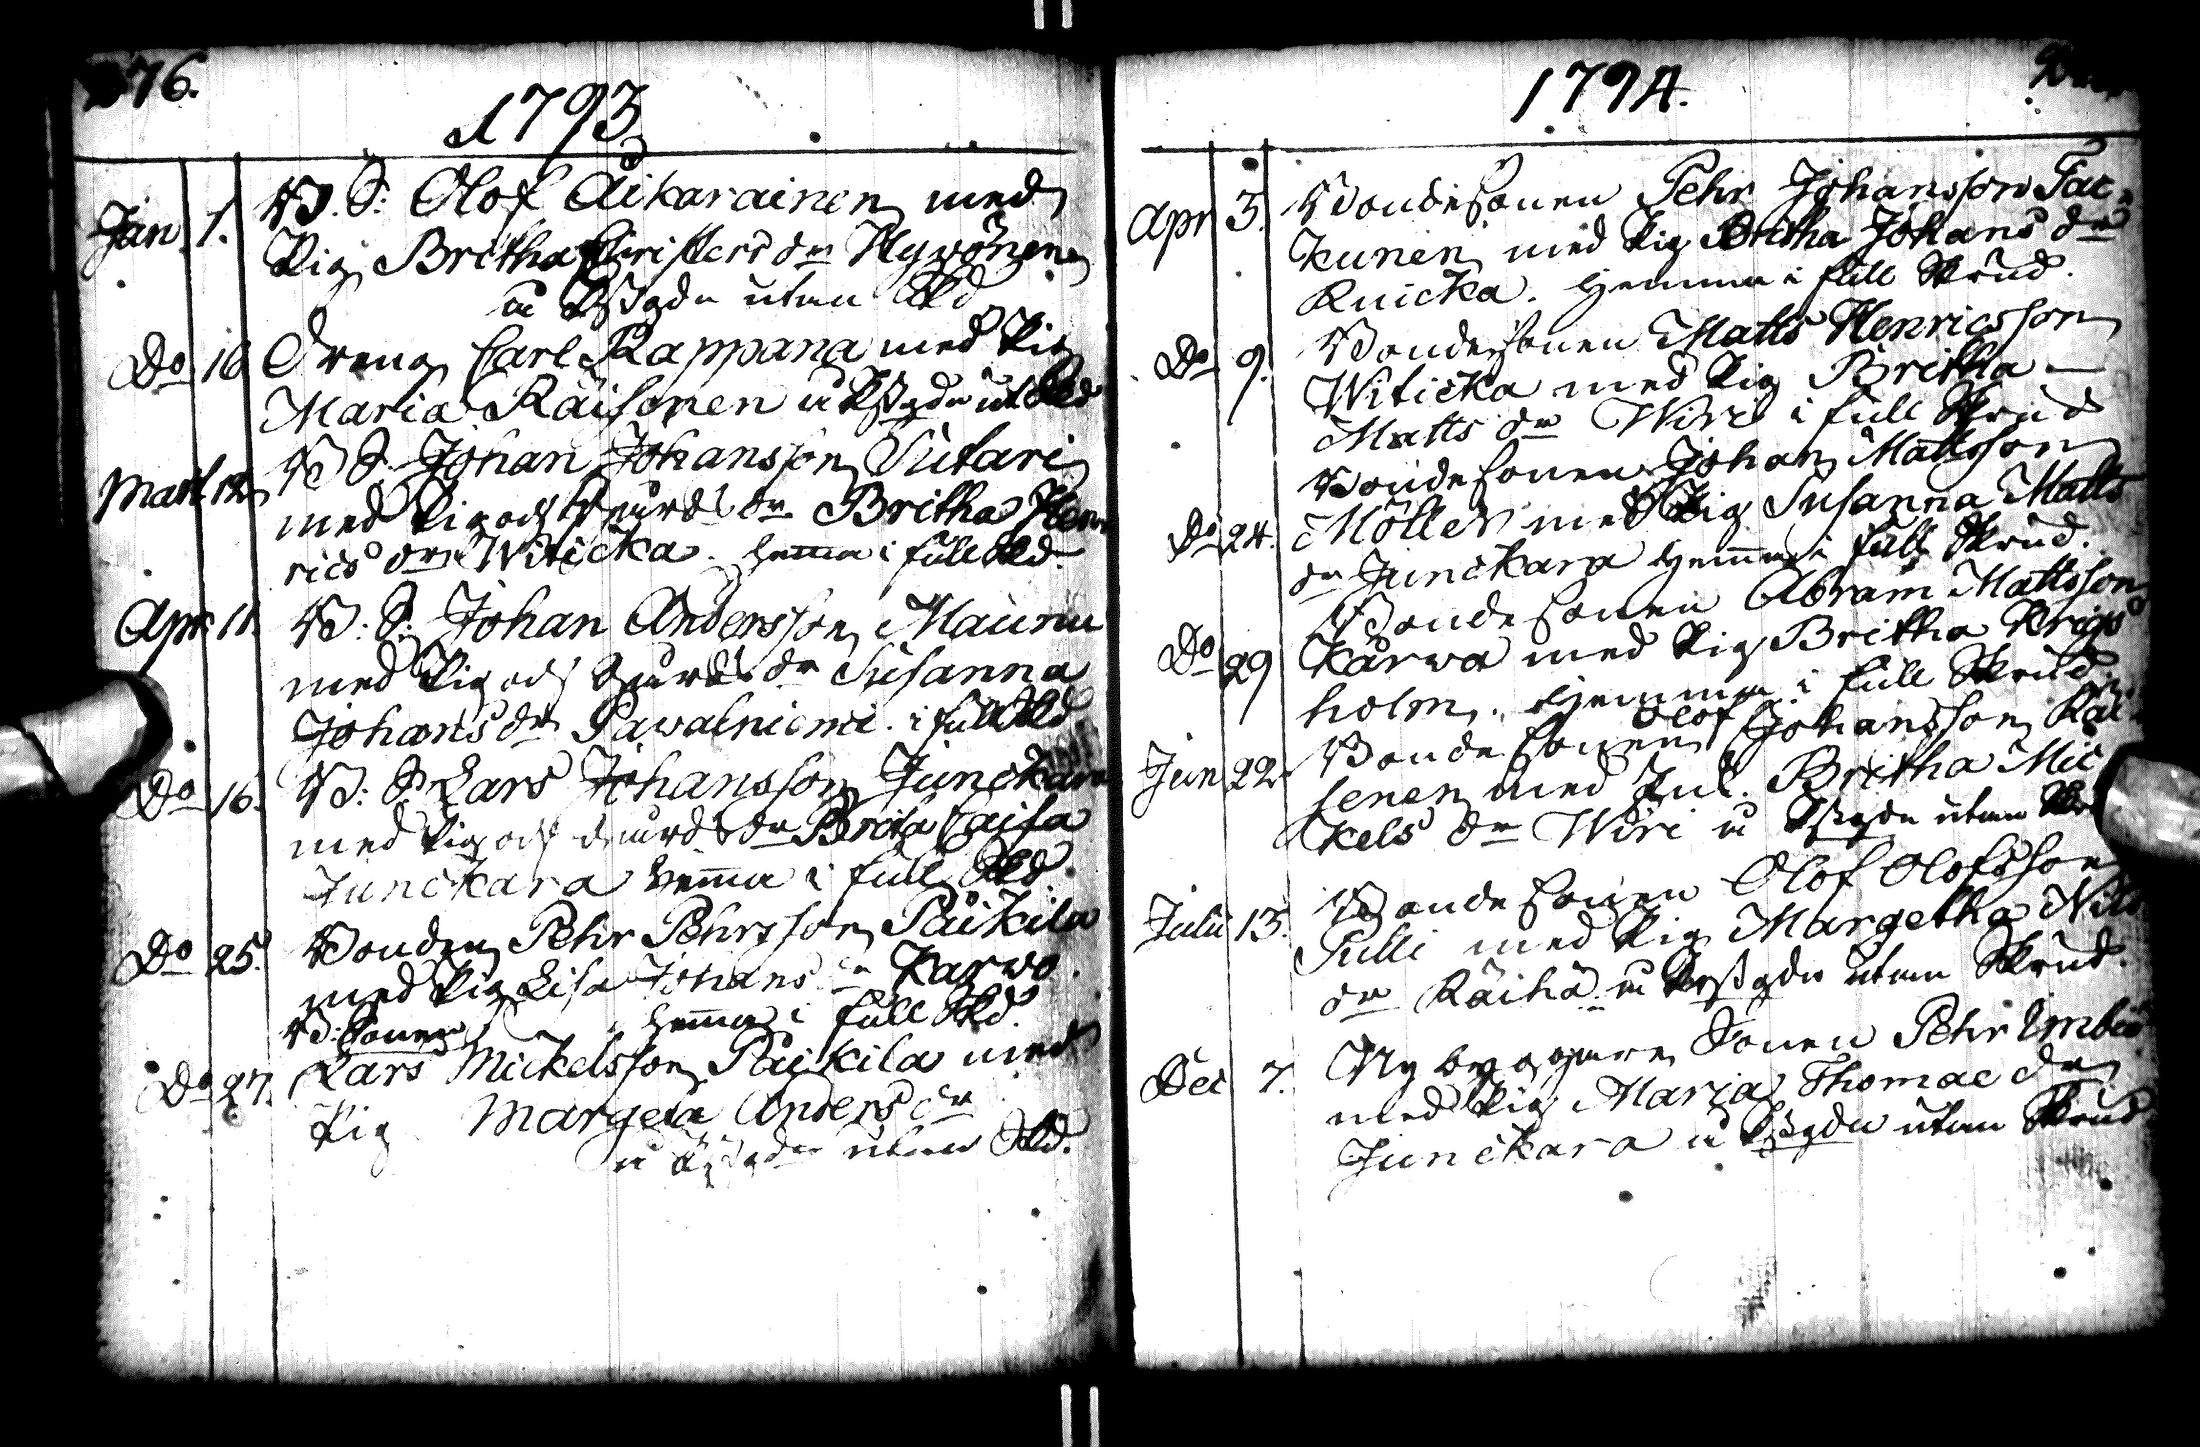 76.
1793
Jan. 1. B. S: Olof Aikarainen med
Pig. Britha Christers dr Hyvönen
u Pstgdn utan Skd
Do 16 Dreng Carl Rappana med Pig
Maria Räisonen u Pstgdn ut Skd
Mart. 12 B S. Johan Johansson Sutari
med Pig och Hemd dr Britha Hen
rics dr Witicka. hema i full Skd.
Apr. 11. B: S: Johan Andersson Maunu
med Pig och dr Susanna
Johans dr Pawalniemi. i full Skd.
Do 16. B: S. Lars Johansson Junckara
med Pig och dr Brita Caisa
Junckara hema i full Skd
Do 25. Bonden Pehr Pehrsson Päikilä
med Pig Lisa Johans dr Karwo.
hema i full Skd.
B: Sonen
Do 27. Lars Mickelsson Päikilä med
Pig Margeta Anders dr
u Pstgdn utan Skd.
1794.
Apr 3. Bondesonen Pehr Johansson Tac
kunen med Pig Britha Johans dr
Kuicka. Hemma i full Skrud.
Do 9. Bondesonen Matts Henricsson
Witicka med Pig Britha
Matts dr Wiri i full Skrud
Do 24. Bondesonen Johan Mattsson
Möller med Pig Susanna Matts
dr Junckara Hema i full Skrud.
Do 29 Bondesonen Abram Mattsson
Karwa med Pig Britha Krigs
holm. Hemma i full Skrud
Jun 22 Bondesonen Olof Johansson Räi
senen med Enk. Britha Mic
kels dr Wiri u Pstgdn utan
Julii 13. Bondesonen Olof Olofsson
Pulli med Pig Margetha Nils
dr Räihä u Prstgdn utan Skrud.
Dec 7. Nybyggare Sonen Pehr
med Pig Maria Thomae dr
Junckara u Pstgdn utan Skrud